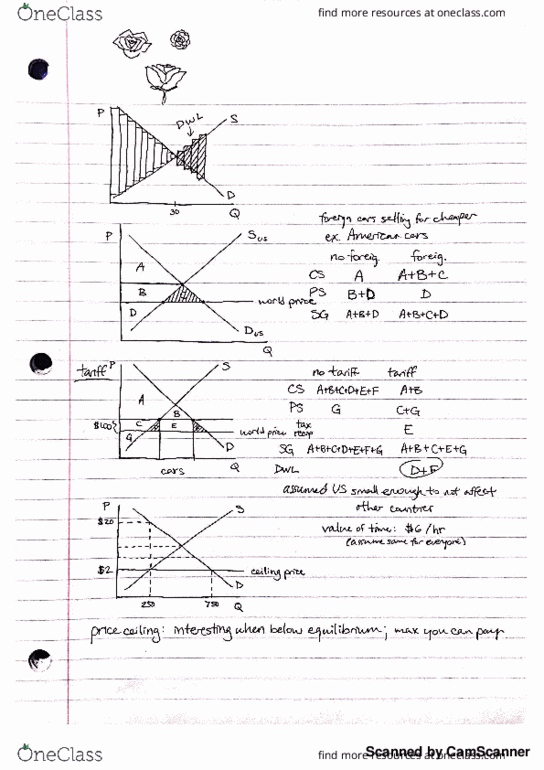 OneClass
find more resources at oneclass.com
P
DWL
S
D
30
Q
foreign cars selling for cheaper
ex. American cars
P
S US
A
B
C
D
world price
D US
Q
no foreig. foreig.
CS A A+B+C
PS B+D D
SG A+B+D A+B+C+D
tariff
P
S
A
B
C
E
G
$100
world price
D
cars
Q
no tariff tariff
CS A+B+C+D+E+F A+B
PS G C+G
tax receip E
SG A+B+C+D+E+F+G A+B+C+E+G
DWL D+F
assumed US small enough to not affect
other countries
value of time: $6/hr
(assume same for everyone)
P
$20
S
$2
ceiling price
D
250
750
Q
price ceiling: interesting when below equilibrium; max you can pay
OneClass
find more resources at oneclass.com
Scanned by CamScanner